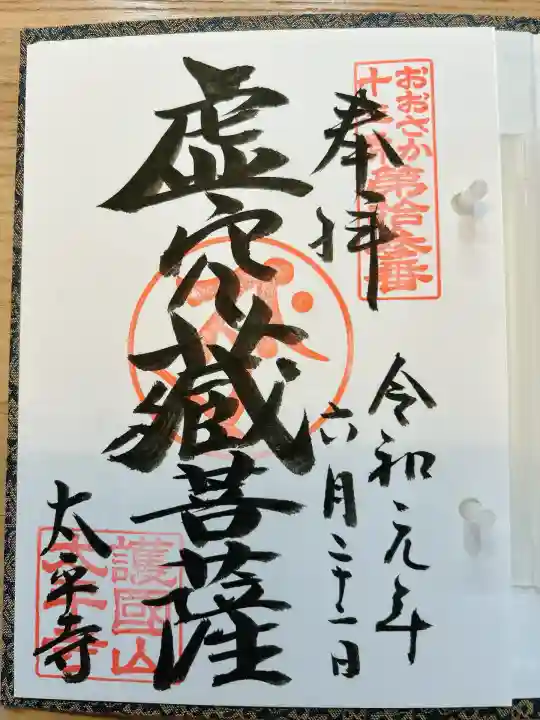 おおさか
十三佛第拾三番
奉拝
令和元年
六月二十二日
虚空蔵菩薩
護國山
太平寺
太平寺